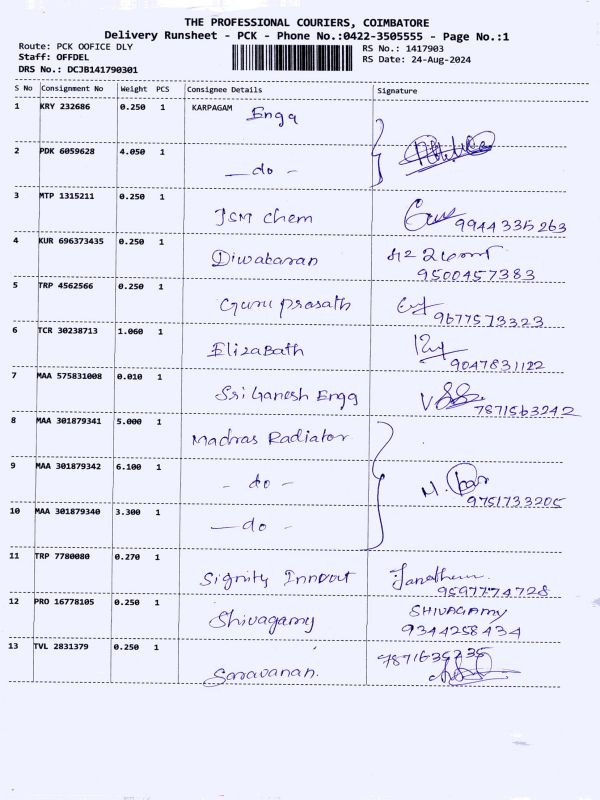 THE PROFESSIONAL COURIERS, COIMBATORE
Delivery Runsheet - PCK - Phone No.:0422-3505555 - Page No.:1
Route: PCK OOFICE DLY RS No.: 1417903
Staff: OFFDEL RS Date: 24-Aug-2024
DRS No.: DCJB141790301
S No Consignment No Weight PCS Consignee Details Signature
1 KRY 232686 0.250 1 KARPAGAM Engg
2 PDK 6059628 4.050 1
— do -
3 MTP 1315211 0.250 1
JSM Chem 9944335263
4 KUR 696373435 0.250 1
Diwakaran
9500457383
5 TRP 4562566 0.250 1
Guru prasath 9677573323
6 TCR 30238713 1.060 1
Elizabath 9047831122
7 MAA 575831008 0.010 1
Sri Ganesh Engg 7871563242
8 MAA 301879341 5.000 1
Madras Radiator
9 MAA 301879342 6.100 1
- do -
9751733205
10 MAA 301879340 3.300 1
— do -
11 TRP 7780080 0.270 1
Signity Innovut
9597774728
12 PRO 16778105 0.250 1 SHIVAGAMY
Shivagamy 9344258434
13 TVL 2831379 0.250 1 7871635235
Saravanan.